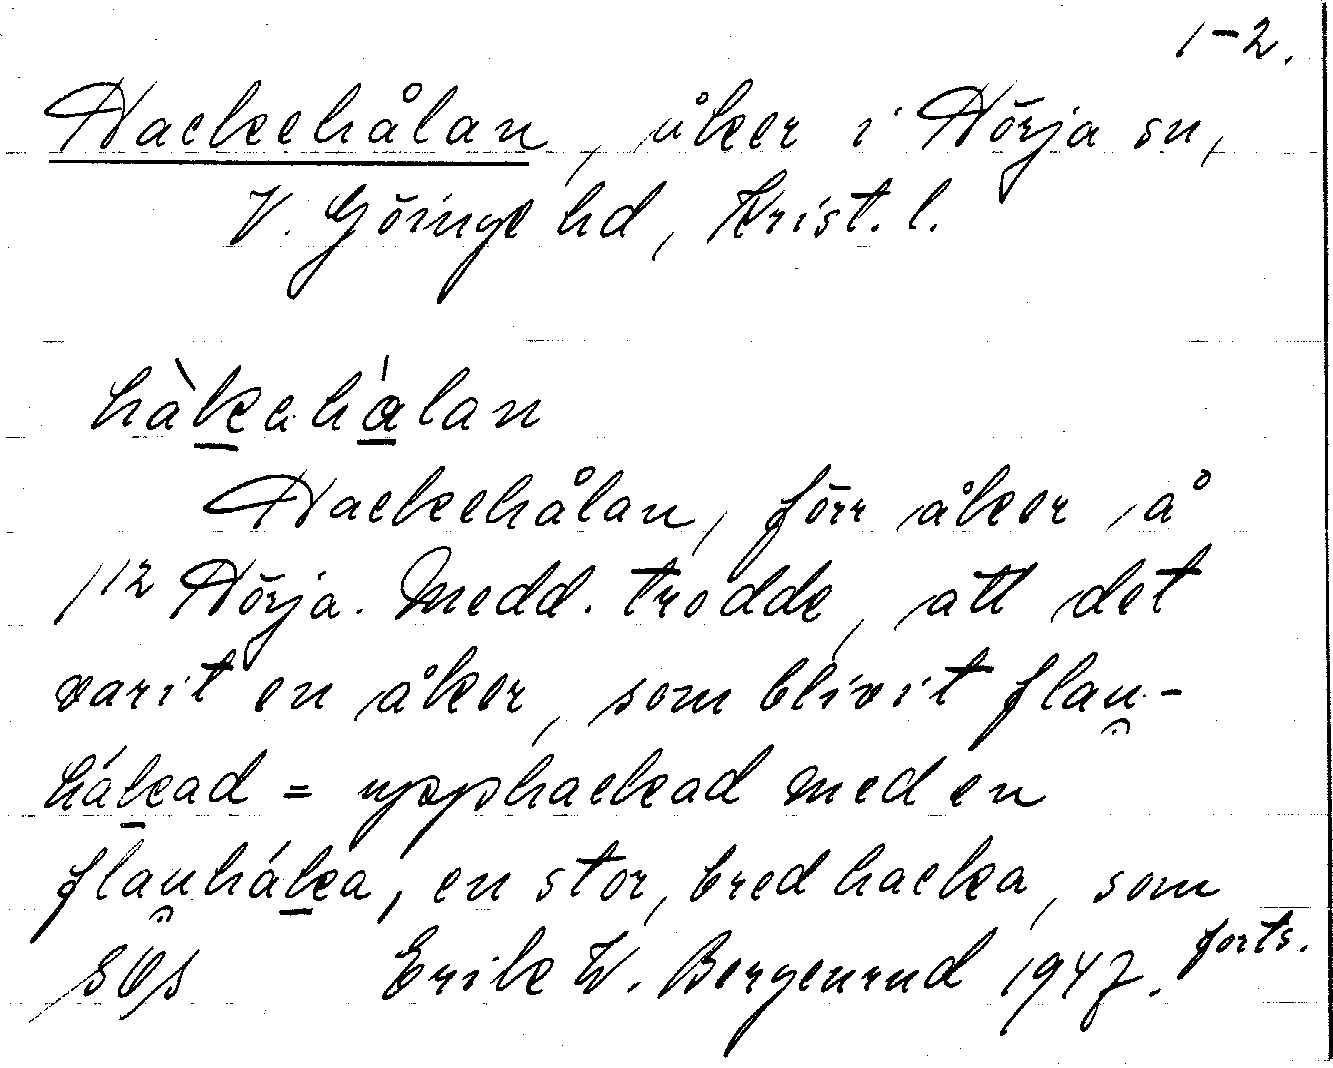 1-2.
Hackehålan, åker i Hörja sn,
V. Göinge hd, Krist. l.
hàkehálan
Hackehålan, förr åker å
1/12 Hörja. Medd. trodde, att det
varit en åker, som blivit flau̯-
hákad = upphackad med en
flau̯háka, en stor, bred hacka, som
forts.
Erik W. Bergenrud 1947.